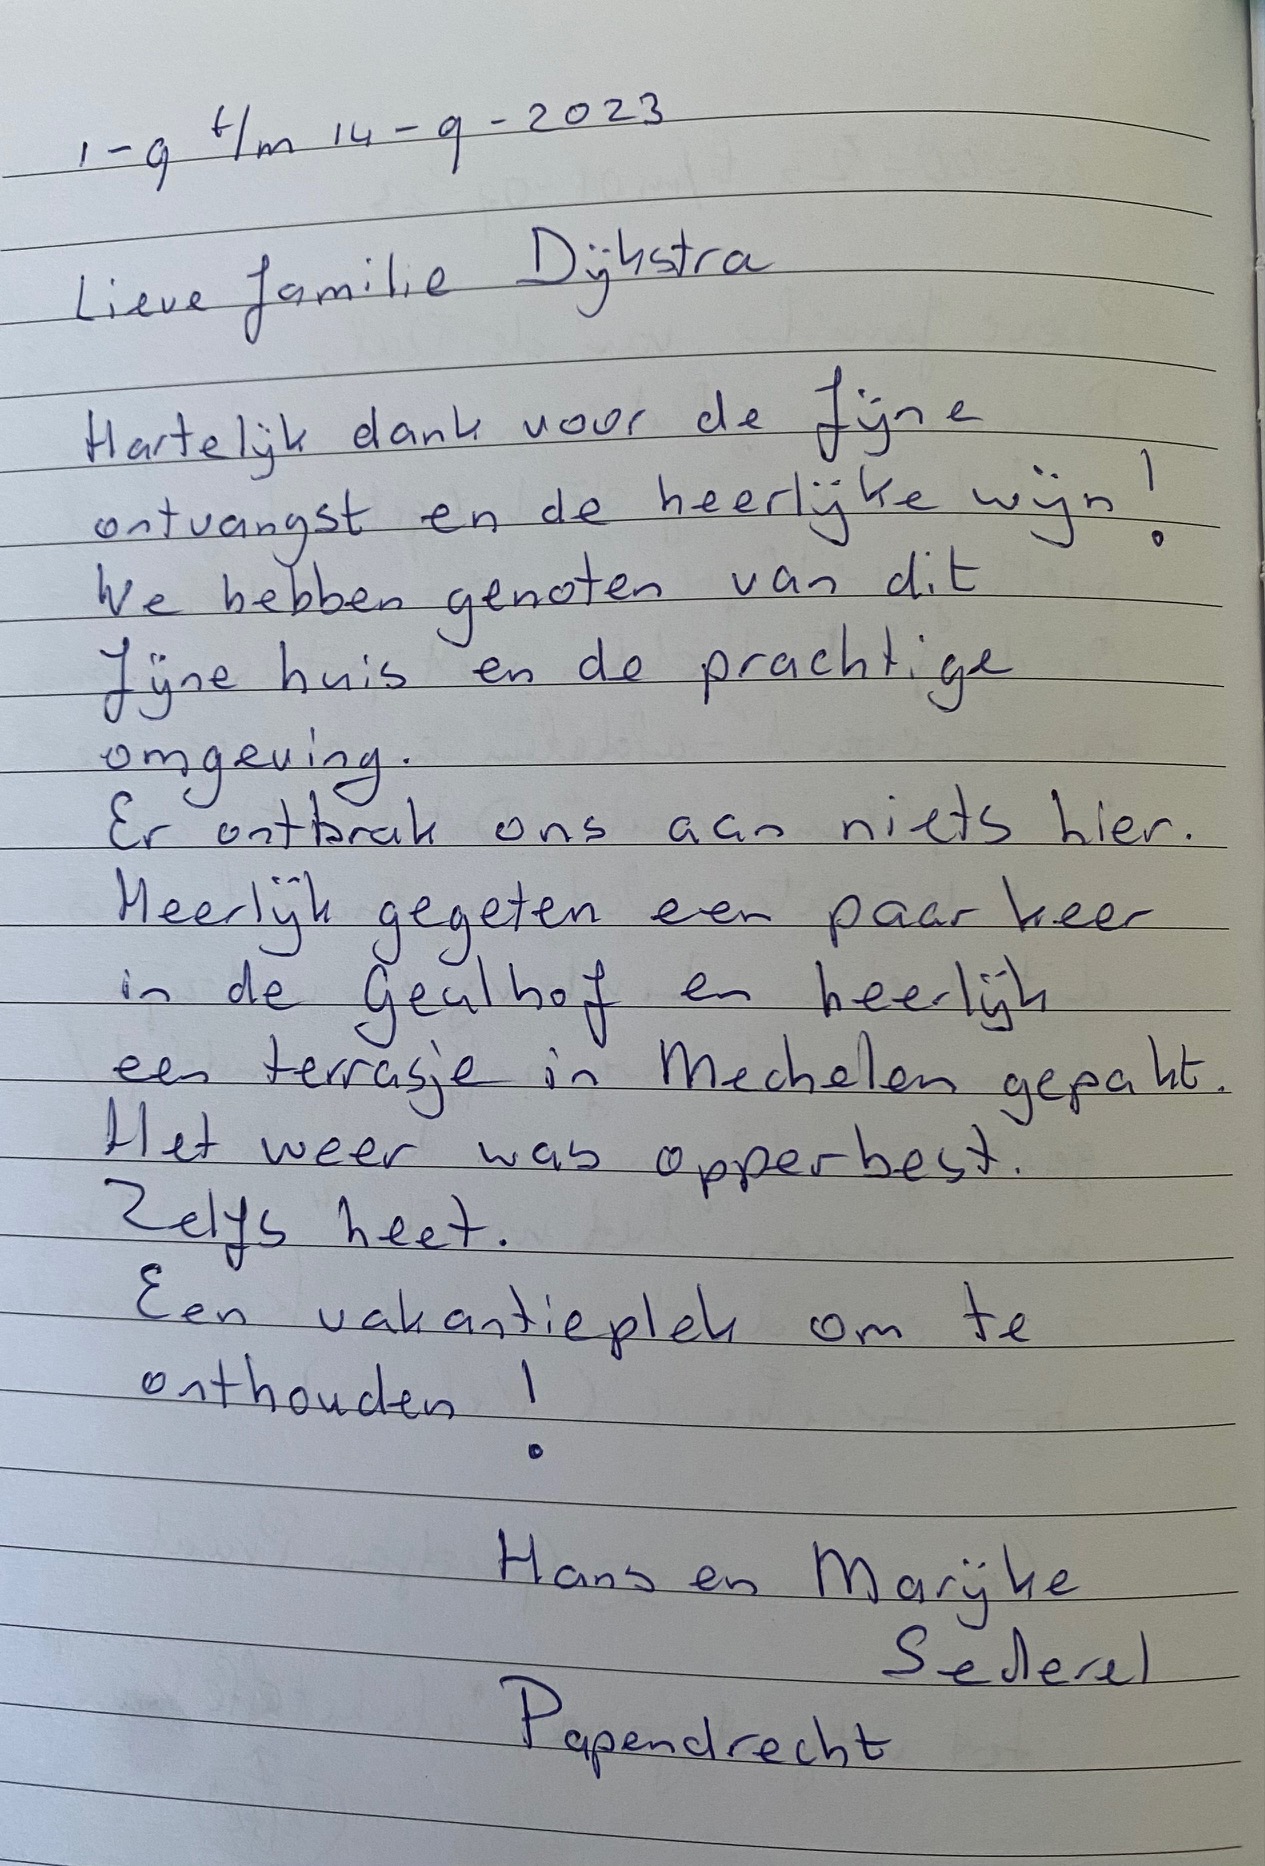 1-9 t/m 14-9-2023
Lieve familie Dijkstra
Hartelijk dank voor de fijne
ontvangst en de heerlijke wijn!
We hebben genoten van dit
fijne huis en de prachtige
omgeving.
Er ontbrak ons aan niets hier.
Heerlijk gegeten een paar keer
in de Geulhof en heerlijk
een terrasje in Mechelen gepakt.
Het weer was opperbest.
Zelfs heet.
Een vakantieplek om te
onthouden!
Hans en Marijke
Papendrecht